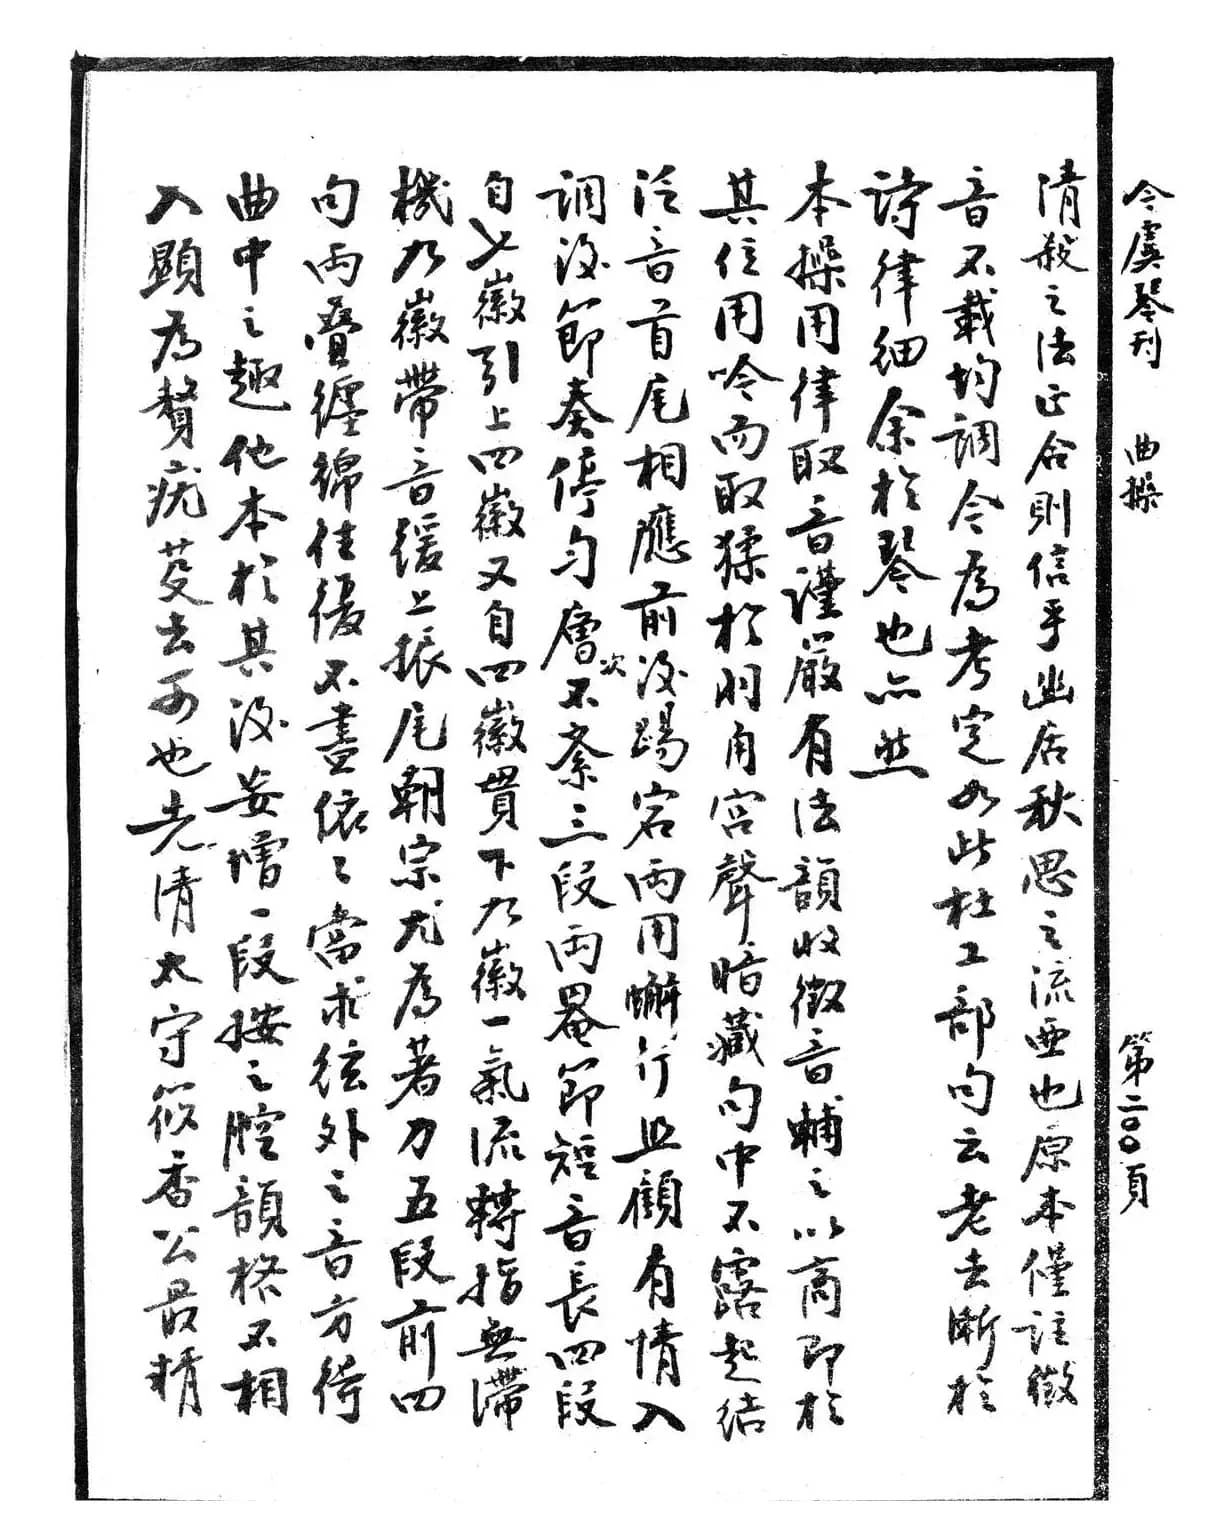 今虞琴刊 曲操 第二〇〇頁
清殺之法正合則信乎幽居秋思之流亜也原本僅註徵
音不載均調今為考定如此杜工部句云老去漸於
詩律細余於琴也亦然
本操用律取音謹嚴有法韻收徵音輔之以商即於
其位用吟而取猱於羽角宮聲暗藏句中不露起結
泛音首尾相應前後踢宕兩用蠏行且顧有情入
調後節奏停勻層次不紊三段兩罨節短音長四段
自七徽引上四徽又自四徽貫下九徽一氣流轉指無滯
機九徽帶音緩上振尾朝宗尤為著力五段前四
句兩疊纏綿往復不盡依〻當求弦外之音方得
曲中之趣他本於其後妄增一段按之腔韻格不相
入顯為贅疣芟去可也先清太守筱香公最精